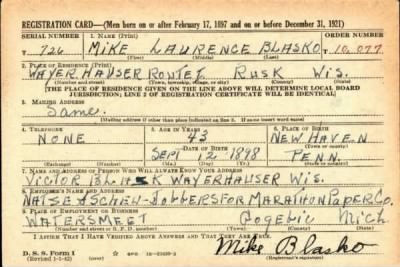 REGISTRATION CARD—(Men born on or after February 17, 1897 and on or before December 31, 1921)
SERIAL NUMBER 1. NAME (Print) ORDER NUMBER
T 726 MIKE LAURENCE BLASKO T 10,077
(First) (Middle) (Last)
2. PLACE OF RESIDENCE (Print)
WAYERHAUSER ROUTE 1, RUSK WIS.
(Number and street) (Town, township, village, or city) (County) (State)
[THE PLACE OF RESIDENCE GIVEN ON THE LINE ABOVE WILL DETERMINE LOCAL BOARD
JURISDICTION; LINE 2 OF REGISTRATION CERTIFICATE WILL BE IDENTICAL]
3. MAILING ADDRESS
Same.
[Mailing address if other than place indicated on line 2. If same insert word same]
4. TELEPHONE 5. AGE IN YEARS 6. PLACE OF BIRTH
NONE 43 NEW HAVEN
DATE OF BIRTH (Town or county)
SEPT 12 1898 PENN.
(Exchange) (Number) (Mo.) (Day) (Yr.) (State or country)
7. NAME AND ADDRESS OF PERSON WHO WILL ALWAYS KNOW YOUR ADDRESS
VICTOR BLASK WAYERHAUSER WIS.
8. EMPLOYER'S NAME AND ADDRESS
JOBBERS FOR MARATHON PAPER CO.
9. PLACE OF EMPLOYMENT OR BUSINESS
WATERSMEET GOGEBIC MICH
(Number and street or R. F. D. number) (Town) (County) (State)
I AFFIRM THAT I HAVE VERIFIED ABOVE ANSWERS AND THAT THEY ARE TRUE.
D. S. S. Form 1
(Revised 1-1-42) Mike Blasko
(Registrant's signature)